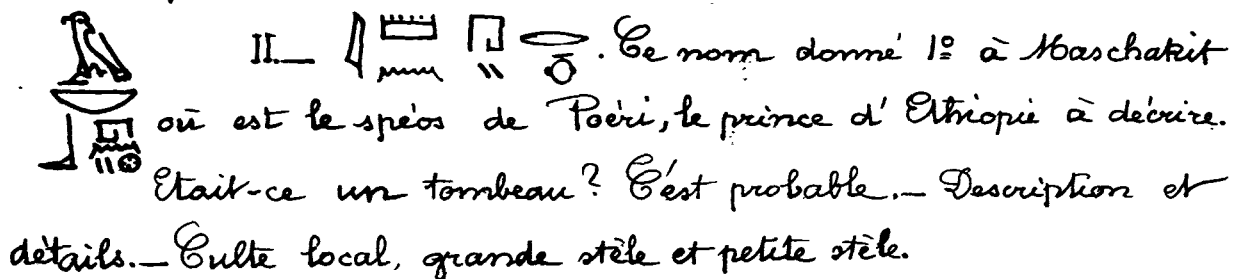 II._ 𓇋𓏠𓈖 𓉔𓏭 𓂋𓏌. Ce nom donné 1º à Maschakit
où est le spéos de Poèri, le prince d'Ethiopie à décrire.
Etait-ce un tombeau? C'est probable._ Description et
détails._ Culte local, grande stèle et petite stèle.